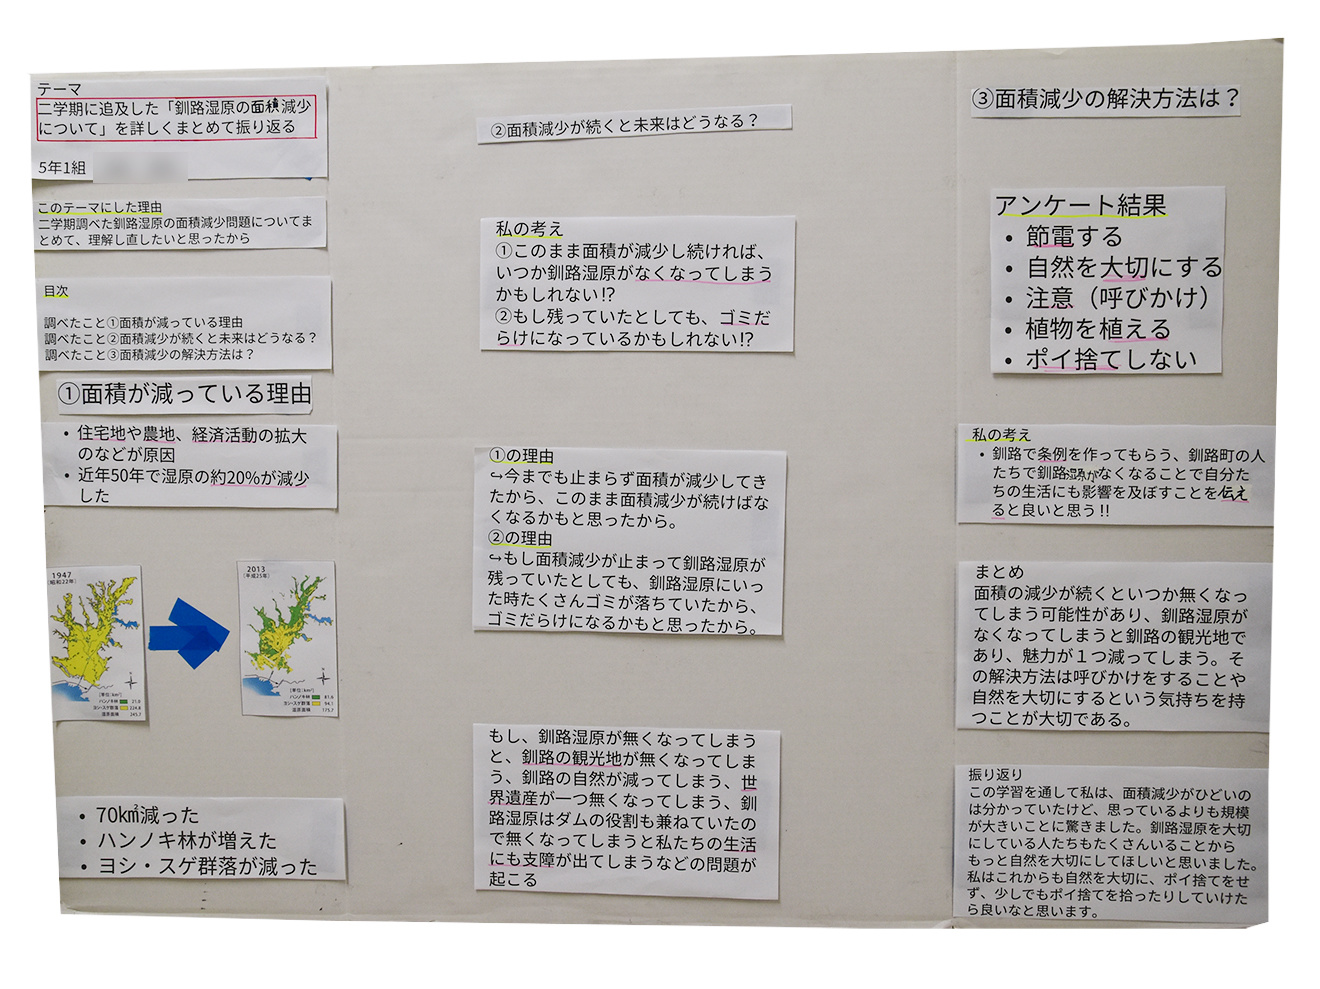 テーマ
二学期に追及した「釧路湿原の面積減少
について」を詳しくまとめて振り返る
5年1組
このテーマにした理由
二学期調べた釧路湿原の面積減少問題についてま
とめて、理解し直したいと思ったから
目次
調べたこと①面積が減っている理由
調べたこと②面積減少が続くと未来はどうなる？
調べたこと③面積減少の解決方法は？
①面積が減っている理由
・住宅地や農地、経済活動の拡大
のなどが原因
・近年50年で湿原の約20%が減少
した
1947
(昭和22年)
[単位:k㎡]
ハンノキ林 21.0
ヨシ・スゲ群落 224.8
湿原面積 245.7
2013
(平成25年)
[単位:k㎡]
ハンノキ林 81.6
ヨシ・スゲ群落 94.1
湿原面積 175.7
・70k㎡減った
・ハンノキ林が増えた
・ヨシ・スゲ群落が減った
②面積減少が続くと未来はどうなる？
私の考え
①このまま面積が減少し続ければ、
いつか釧路湿原がなくなってしまう
かもしれない!?
②もし残っていたとしても、ゴミだ
らけになっているかもしれない!?
①の理由
↪今までも止まらず面積が減少してき
たから、このまま面積減少が続けばな
くなるかもと思ったから。
②の理由
↪もし面積減少が止まって釧路湿原が
残っていたとしても、釧路湿原にいっ
た時たくさんゴミが落ちていたから、
ゴミだらけになるかもと思ったから。
もし、釧路湿原が無くなってしまう
と、釧路の観光地が無くなってしま
う、釧路の自然が減ってしまう、世
界遺産が一つ無くなってしまう、釧
路湿原はダムの役割も兼ねていたの
で無くなってしまうと私たちの生活
にも支障が出てしまうなどの問題が
起こる
③面積減少の解決方法は？
アンケート結果
・節電する
・自然を大切にする
・注意（呼びかけ）
・植物を植える
・ポイ捨てしない
私の考え
・釧路で条例を作ってもらう、釧路町の人
たちで釧路湿原がなくなることで自分た
ちの生活にも影響を及ぼすことを伝え
ると良いと思う!!
まとめ
面積の減少が続くといつか無くなっ
てしまう可能性があり、釧路湿原が
なくなってしまうと釧路の観光地で
あり、魅力が１つ減ってしまう。そ
の解決方法は呼びかけをすることや
自然を大切にするという気持ちを持
つことが大切である。
振り返り
この学習を通して私は、面積減少がひどいの
は分かっていたけど、思っているよりも規模
が大きいことに驚きました。釧路湿原を大切
にしている人たちもたくさんいることから
もっと自然を大切にしてほしいと思いました。
私はこれからも自然を大切に、ポイ捨てをせ
ず、少しでもポイ捨てを拾ったりしていけた
ら良いなと思います。